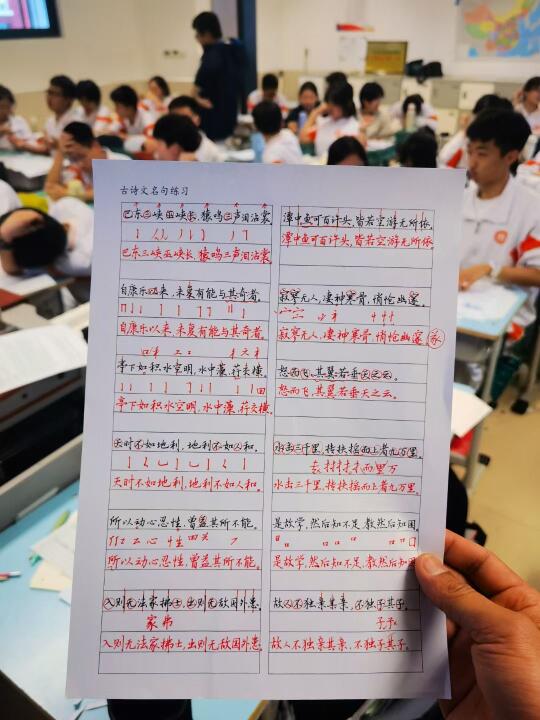 古诗文名句练习
巴东三峡巫峡长, 猿鸣三声泪沾裳
巴东三峡巫峡长, 猿鸣三声泪沾裳
自康乐以来, 未复有能与其奇者。
自康乐以来, 未复有能与其奇者。
庭下如积水空明, 水中藻、荇交横。
庭下如积水空明, 水中藻、荇交横。
天时不如地利, 地利不如人和。
天时不如地利, 地利不如人和。
所以动心忍性, 曾益其所不能。
所以动心忍性, 曾益其所不能。
入则无法家拂士, 出则无敌国外患。
家 弗
入则无法家拂士, 出则无敌国外患。
潭中鱼可百许头, 皆若空游无所依
潭中鱼可百许头, 皆若空游无所依
寂寥无人, 凄神寒骨, 悄怆幽邃。
寂寥无人, 凄神寒骨, 悄怆幽邃。
怒而飞, 其翼若垂天之云。
怒而飞, 其翼若垂天之云。
水击三千里, 抟扶摇而上者九万里。
去扌扌扌扌而里万
水击三千里, 抟扶摇而上者九万里。
是故学, 然后知不足, 教然后知困。
是故学, 然后知不足, 教然后知困
故人不独亲其亲, 不独子其子。
子子
故人不独亲其亲, 不独子其子。